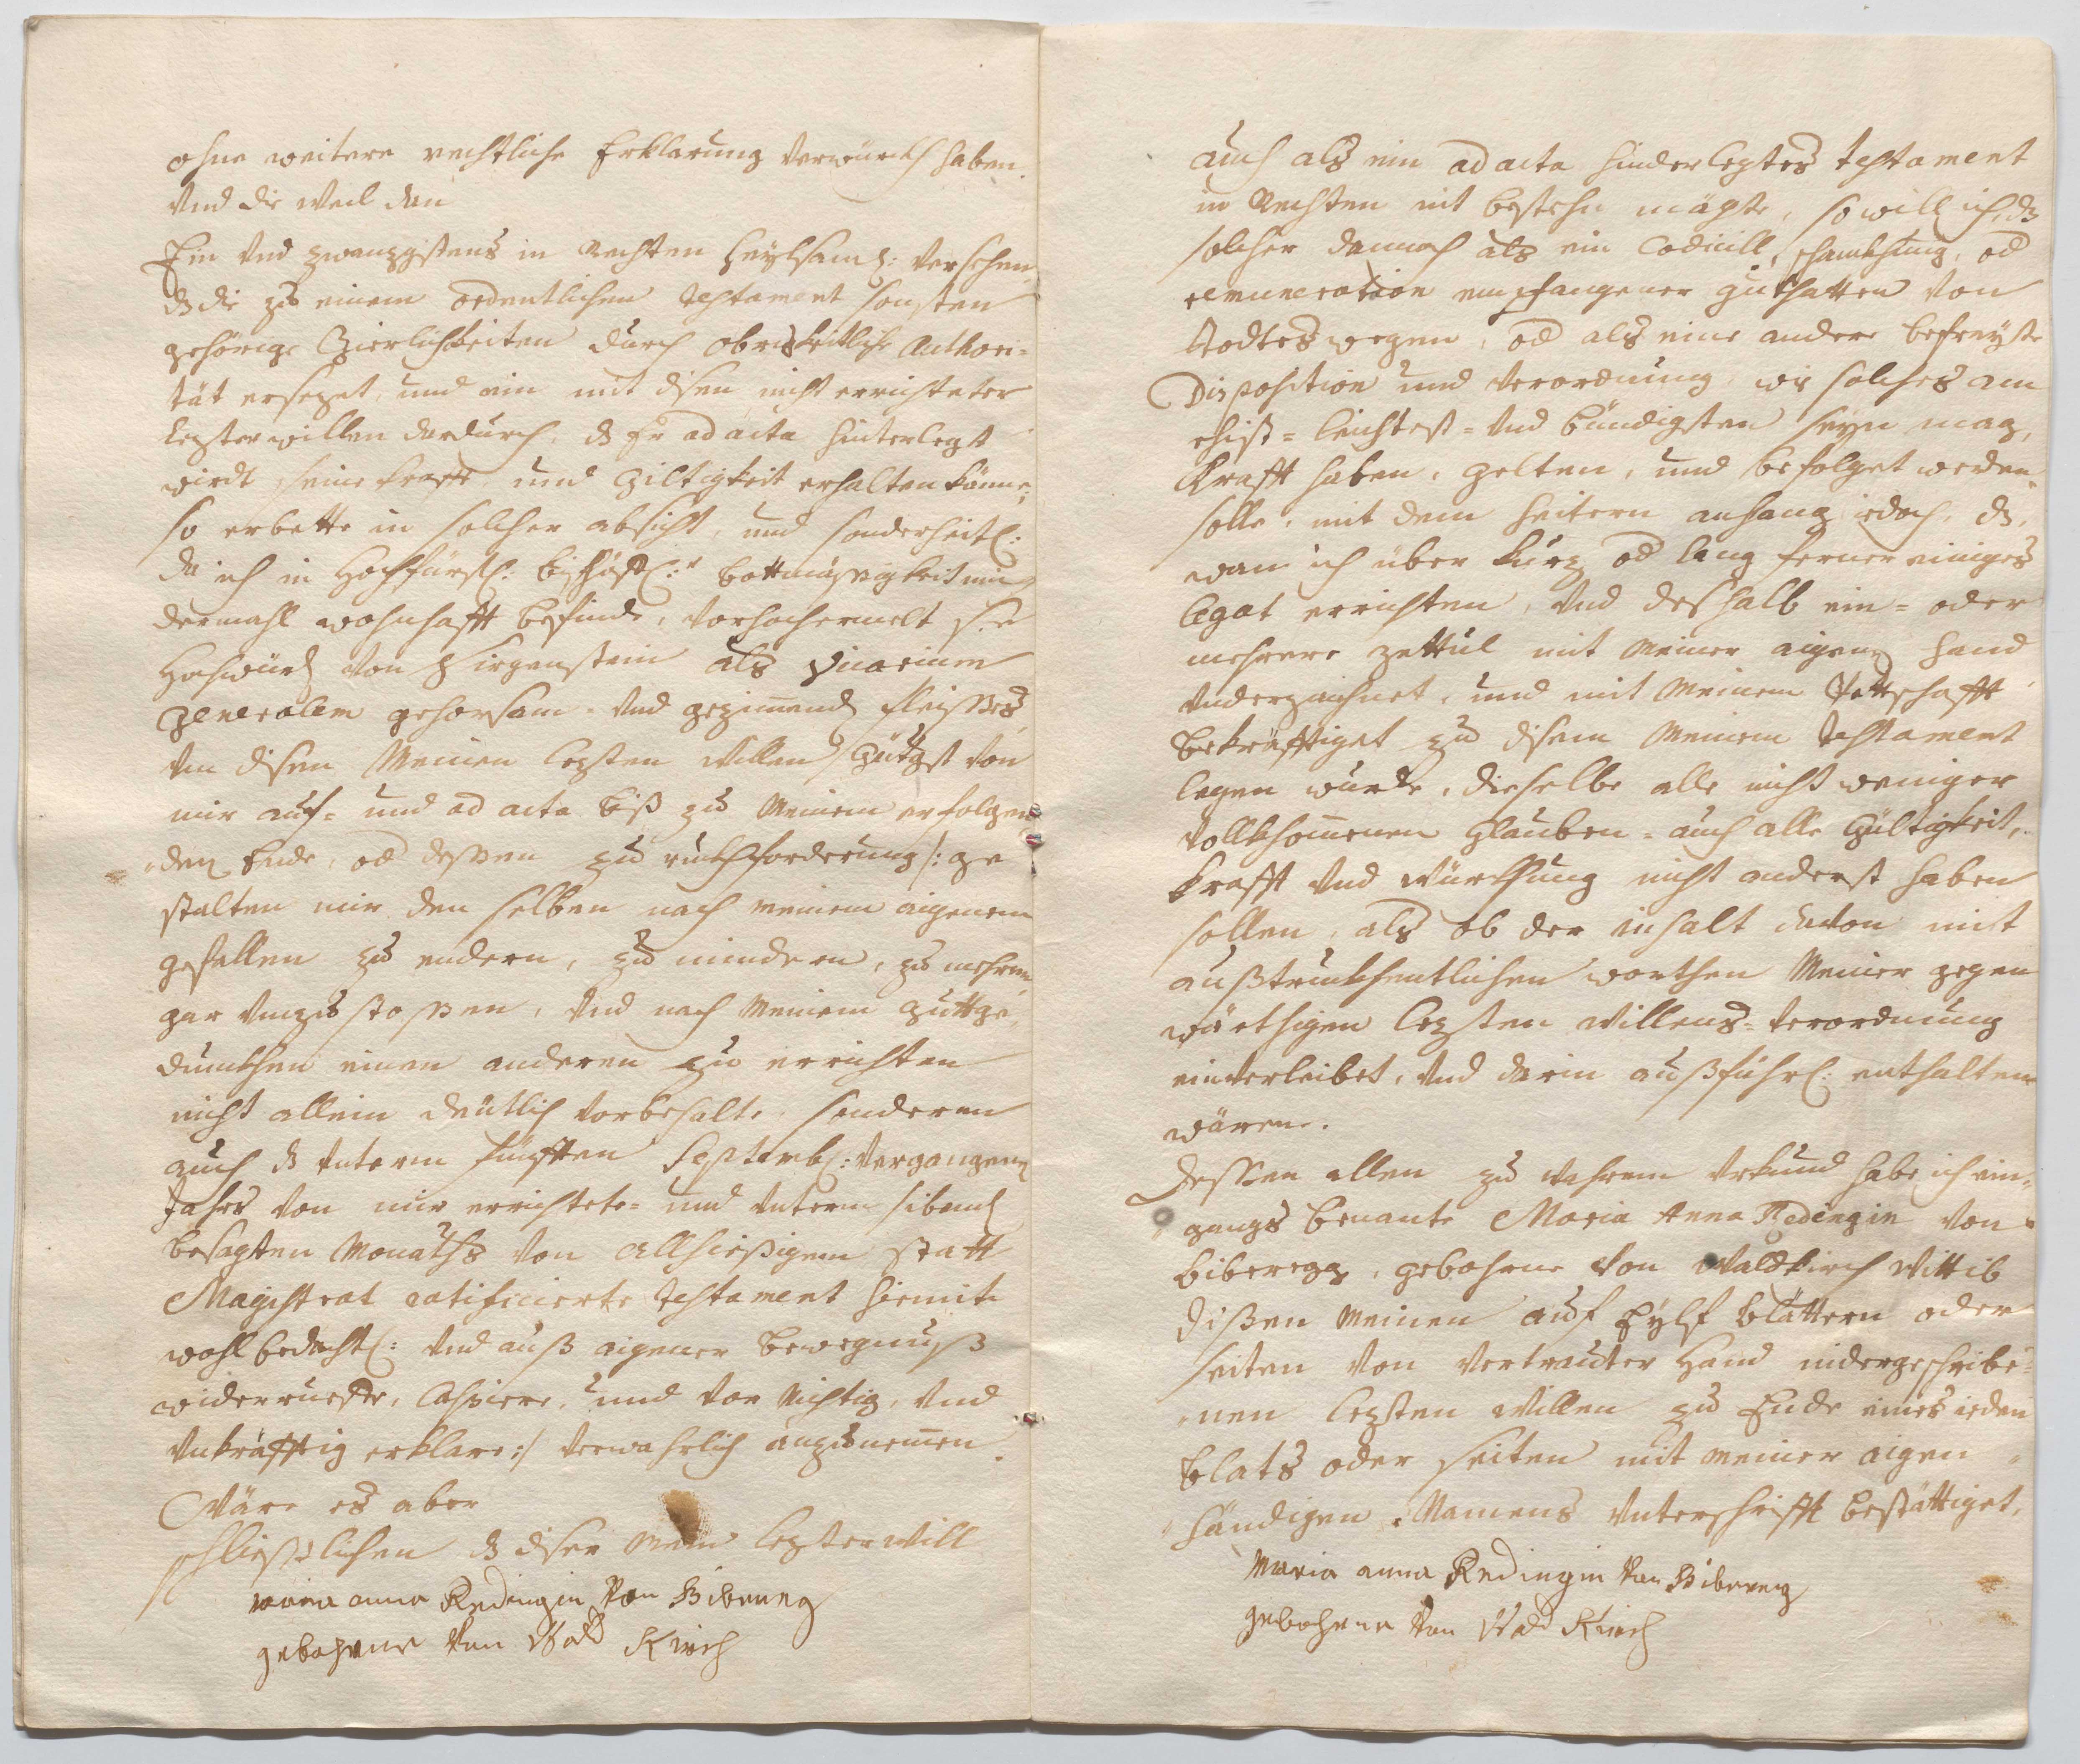 ohne weitere rechtliche Erklärung verwürckh haben.
Vnd die weil den
Ein vnd zwanzgistens in Rechten heylsaml: versehen
dz die zu einem ordentlichen Testament sonsten
gehörige Zierlichkeiten durch obrigkeitliche Authori-
tät ersezet, und ein mit disen nicht errichteter
lezter willen dardurch, dz Er ad acta hinterlegt
wirdt, seine krafft und Giltigkeit erhalten könne;
so erbette in solcher absicht, und sonderheitl:
da ich in Hochfürstl: bischöffl:r bottmäßigkeit nun
dermahl wohnhafft befinde, vorhochermelt Se
Hochwürd von Hirgenstein als Vicarium
Generalem gehorsam- vnd gezimmend fleisses,
vm disen Meinen lezten willen Gütigst von
mir auf- und ad acta biß zu Meinem erfolgen
den Ende, od dessen zu ruckhforderung /: ge
stalten mir den selben nach meinem aigenem
gefallen zu endern, zu mindern, zu mehren,
gar vmzustossen, vnd nach Meinem guttge-
dunckhen einen anderen zu errichten
nicht allein deütlich vorbehalte, sonderen
auch dz vnterm fünfften Septembr: vergangenen
Jahrs von mir errichtete- und vnterm sibend
besagten Monaths von allhießigem statt
Magistrat ratificierte Testament hiemit
wohlbedächtl: vnd auß aigener bewegnuß
widerrueffe, Cassiere, und vor Nichtig, vnd
vnkräfftig erkläre :/ verwahrlich anzunemmen.
Wäre es aber
schließlichen dz diser Mein lezter will
maria anna Redingin Von Bibereg
gebohrne Von Wald Kirch
auch als ein ad acta hinderlegtes Testament
in Rechten nit bestehn mögte, so will ich, dz
solcher dannoch als ein Codicill, schanckhung, od
remuneration empfangener gutthatten von
Todtes wegen, od als eine andere befreyte
Disposition und verordnung, wie solches am
ehist- leichtest- vnd bündigsten seyn mag,
Krafft haben, gelten, und befolget werden
solle, mit dem heitern anhang iedoch, dz,
wan ich über kurz od lang ferner einiges
legat errichten, vnd deshalb ein- oder
mehrere zettul mit Meiner aigenen hand
vnderzeichnet, und mit Meinem Pettschafft
bekräfftiget zu disem Meinem Testament
legen wurde, dieselbe alle nicht weniger
vollkhommenen glauben- auch alle Gültigkeit,
krafft vnd würckhung nicht anderst haben
sollen, als ob der inhalt davon mit
außtruckhentlichen worthen Meiner gegen
wärthigen lezten willens-verordnung
einverleibet, vnd darin außführl: enthalten
wären.
Dessen allen zu wahrem vrkund habe ich ein-
gangs benante Maria Anna Redingin von
biberegg, gebohrne von Waldkirch Wittib
dißen Meinen auf Eylf blättern oder
seiten von vertrauter Hand nidergeschribe-
nen lezten willen zu Ende eines ieden
blats oder seiten mit meiner aigen
händigen Namens vnterschrifft bestättiget,
Maria anna Redingin Von Bibereg
gebohrne Von Wald Kirch